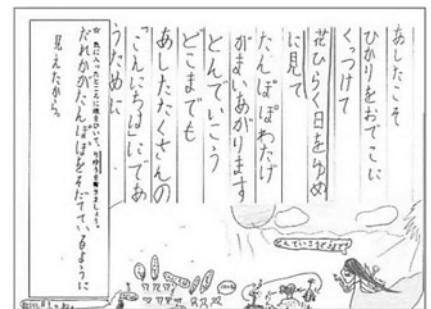 あしたこそ
ひかりをおでこに
くっつけて
花ひらく日をゆめ
に見て
たんぽぽわたげ
がまいあがります
とんでいこう
どこまでも
あしたたくさんの
「こんにちは」にであ
うために
☆ 気に入ったところに線をひいて、りゆうを書きましょう。
だれかがたんぽぽをそだてているように
見えたから。
とんでいこうどこまでも